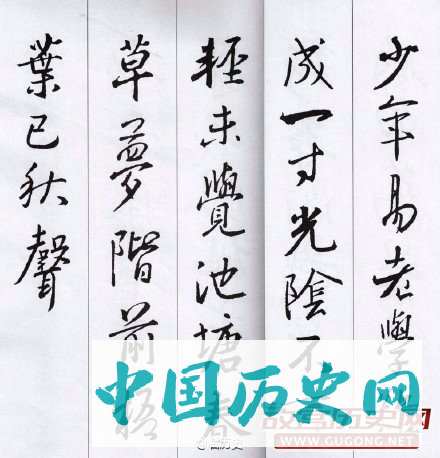 少年易老學
成一寸光陰不
輕未覺池塘春
草夢階前梧
葉已秋聲
中国历史网
故宫历史网
WWW.GUGONG.NET